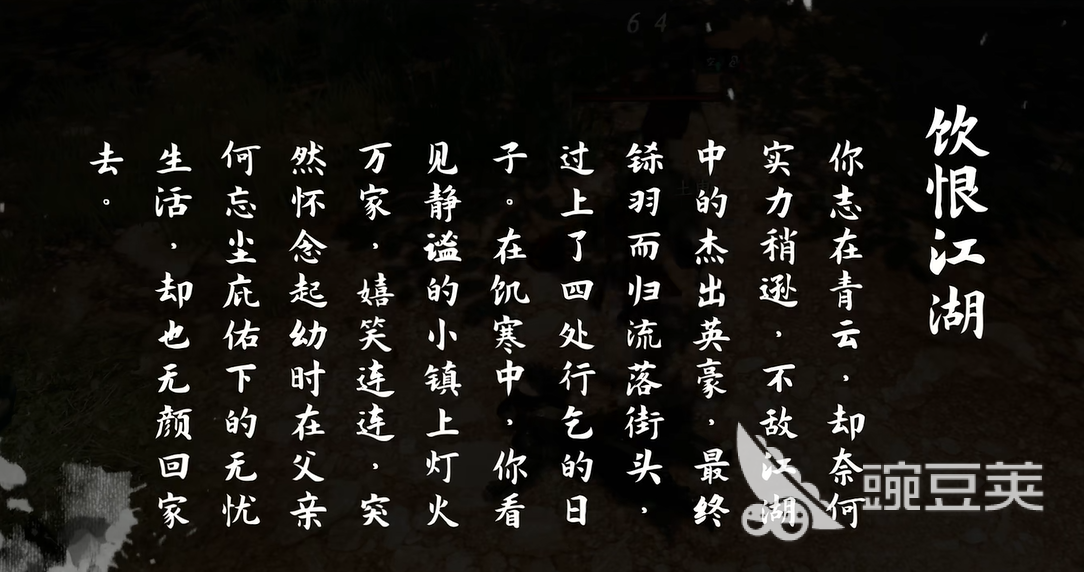 饮恨江湖
你志在青云，却奈何
实力稍逊，不敌江湖
中的杰出英豪，最终
铩羽而归流落街头，
过上了四处行乞的日
子。在饥寒中，你看
见静谧的小镇上灯火
万家，嬉笑连连，突
然怀念起幼时在父亲
何忘尘庇佑下的无忧
生活，却也无颜回家
去。
64
豌豆荚